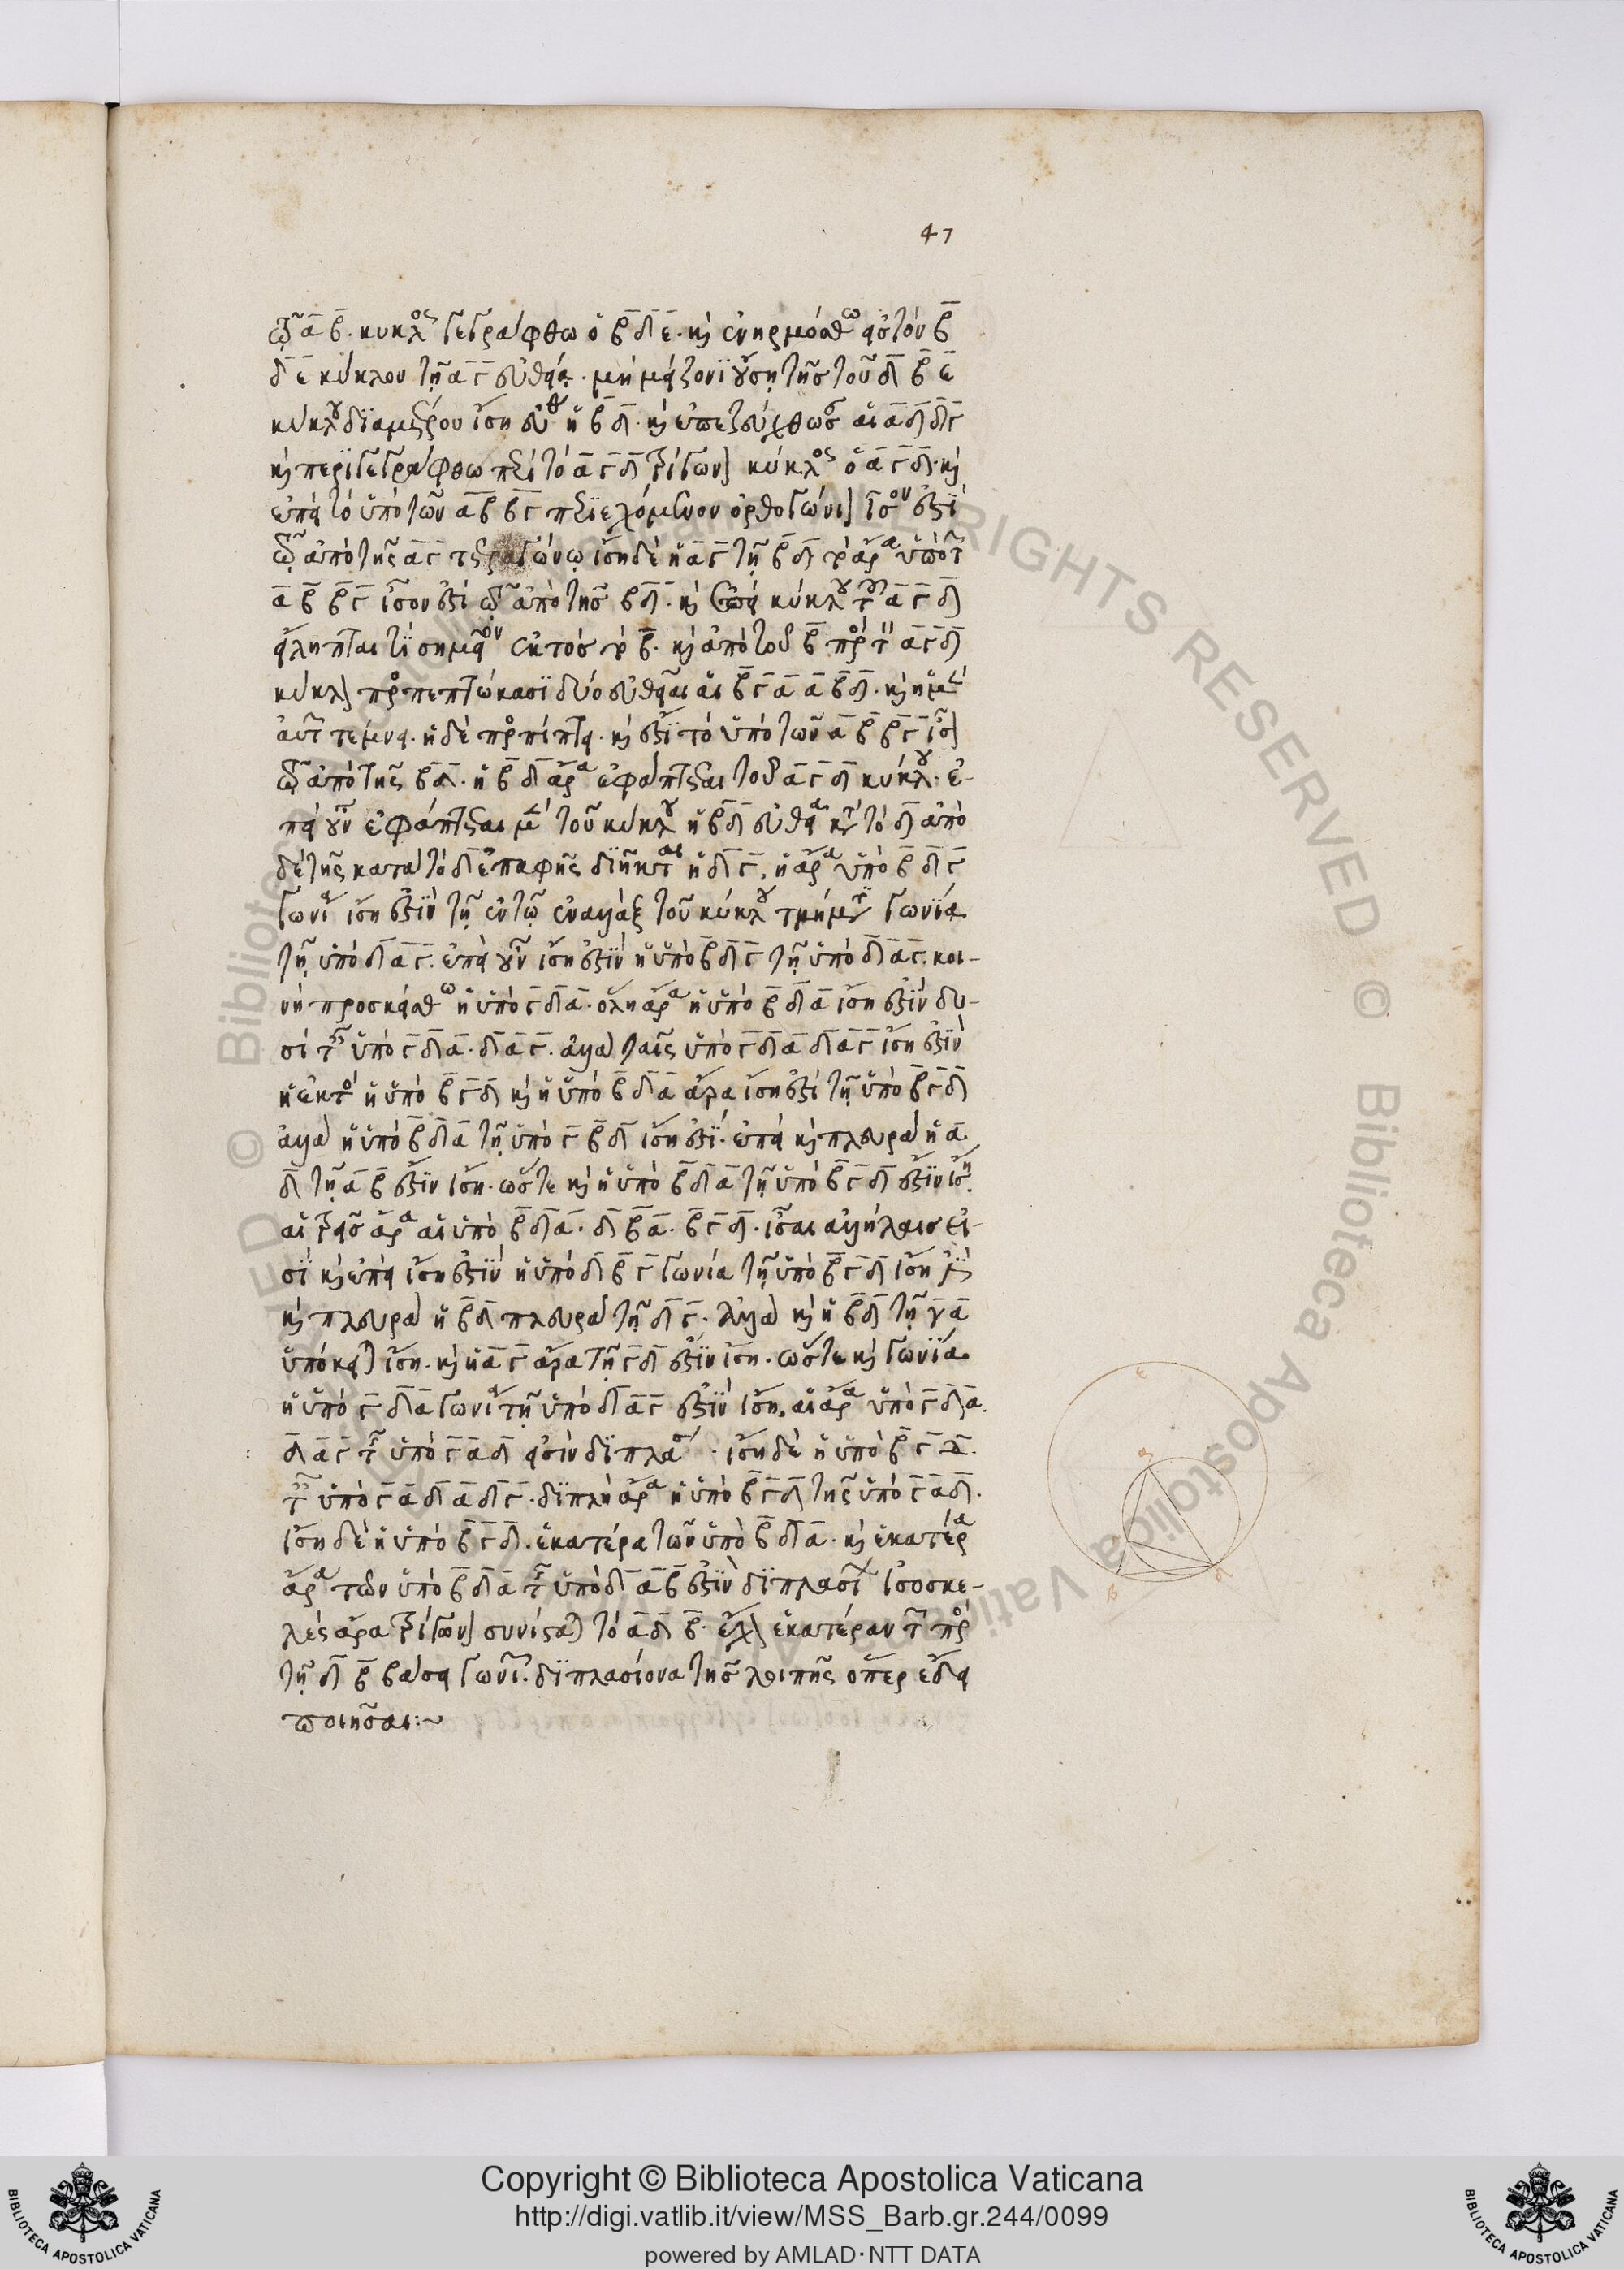 47
τῷ α β. κύκλος γεγράφθω ὁ β δ ε. καὶ ἐνηρμόσθω εἰς τὸν β
δ ε κύκλον τῇ α γ εὐθεία. μὴ μείζονι οὔση τῆς τοῦ δ β ε
κύκλου διαμέτρου ἴση εὐθ ἡ β δ. καὶ ἐπεζεύχθωσ αἱ α δ δ γ
καὶ περιγεγράφθω περὶ τὸ α γ δ τρίγωνον κύκλος ὁ α γ δ. καὶ
ἐπεὶ τὸ ὑπὸ τῶν α β β γ περιεχόμενον ὀρθογώνιον ἴσον ἐστὶ
τῷ ἀπὸ τῆς α γ τετραγώνῳ ἴση δὲ ἡ α γ τῇ β δ τὸ ἄρα ὑπὸ τ
α β β γ ἴσον ἐστὶ τῷ ἀπὸ τῆς β δ. καὶ ἐπεὶ κύκλου τοῦ α γ δ
εἴληπται τι σημεῖον ἐκτὸς τὸ β. καὶ ἀπὸ τοῦ β πρὸς τὸν α γ δ
κύκλον προσπεπτώκασι δύο εὐθεῖαι αἱ β γ α α β δ. καὶ ἡ μὲν
αὐτ τέμνει. ἡ δὲ προσπίπτει. καὶ ἐστὶ τὸ ὑπὸ τῶν α β β γ ἴσον
τῷ ἀπὸ τῆς β δ. ἡ β δ ἄρα ἐφάπτεται τοῦ α γ δ κύκλου. ἐ-
πεὶ οὖν ἐφάπτεται μὲν τοῦ κύκλου ἡ β δ εὐθεῖα κατὰ τὸ δ ἀπὸ
δὲ τῆς κατὰ τὸ δ ἐπαφῆς διῆκται ἡ δ γ. ἡ ἄρα ὑπὸ β δ γ
γωνία ἴση ἐστὶν τῇ ἐν τῷ ἐναλλὰξ τοῦ κύκλου τμήματι γωνία
τῇ ὑπὸ δ α γ. ἐπεὶ οὖν ἴση ἐστὶν ἡ ὑπὸ β δ γ τῇ ὑπὸ δ α γ. κοι-
νὴ προσκείσθω ἡ ὑπὸ γ δ α. ὅλη ἄρα ἡ ὑπὸ β δ α ἴση ἐστὶν δυ-
σὶ ταῖς ὑπὸ γ δ α. δ α γ. ἀλλὰ ταῖς ὑπὸ γ δ α δ α γ ἴση ἐστὶν
ἡ ἐκτὸς ἡ ὑπὸ β γ δ καὶ ἡ ὑπὸ β δ α ἄρα ἴση ἐστὶ τῇ ὑπὸ β γ δ
ἀλλὰ ἡ ὑπὸ β δ α τῇ ὑπὸ γ β δ ἴση ἐστί. ἐπεὶ καὶ πλευρὰ ἡ α
δ τῇ α β ἐστὶν ἴση. ὥστε καὶ ἡ ὑπὸ β δ α τῇ ὑπὸ β γ δ ἐστὶν ἴση.
αἱ τρεῖς ἄρα αἱ ὑπὸ β δ α. δ β α. β γ δ. ἴσαι ἀλλήλαις εἰ-
σὶ καὶ ἐπεὶ ἴση ἐστὶν ἡ ὑπὸ δ β γ γωνία τῇ ὑπὸ β γ δ ἴση ἐστὶ
καὶ πλευρὰ ἡ β δ πλευρᾶ τῇ δ γ. ἀλλὰ καὶ ἡ β δ τῇ γ α
ὑπόκειται ἴση. καὶ ἡ α γ ἄρα τῇ γ δ ἐστὶν ἴση. ὥστε καὶ γωνία
ἡ ὑπὸ γ δ α γωνία τῇ ὑπὸ δ α γ ἐστὶν ἴση. αἱ ἄρα ὑπὸ γ δ α.
δ α γ τῆς ὑπὸ γ α δ εἰσὶν διπλασ. ἴση δὲ ἡ ὑπὸ β γ δ.
ταῖς ὑπὸ γ α δ α δ γ. διπλῆ ἄρα ἡ ὑπὸ β γ δ τῆς ὑπὸ γ α δ.
ἴση δὲ ἡ ὑπὸ β γ δ. ἑκατέρα τῶν ὑπὸ β δ α. καὶ ἑκατέρα
ἄρα τῶν ὑπὸ β δ α τῆς ὑπὸ δ α β ἐστὶν διπλασί ἰσοσκε-
λὲς ἄρα τρίγωνον συνίσταται τὸ α δ β. ἔχον ἑκατέραν τῶν πρὸς
τῇ δ β βάσει γωνι. διπλασίονα τῆς λοιπῆς ὅπερ ἔδει
ποιῆσαι:~
ε
α
γ
β
δ
Copyright © Biblioteca Apostolica Vaticana
http://digi.vatlib.it/view/MSS_Barb.gr.244/0099
powered by AMLAD·NTT DATA
BIBLIOTECA APOSTOLICA VATICANA
BIBLIOTECA APOSTOLICA VATICANA